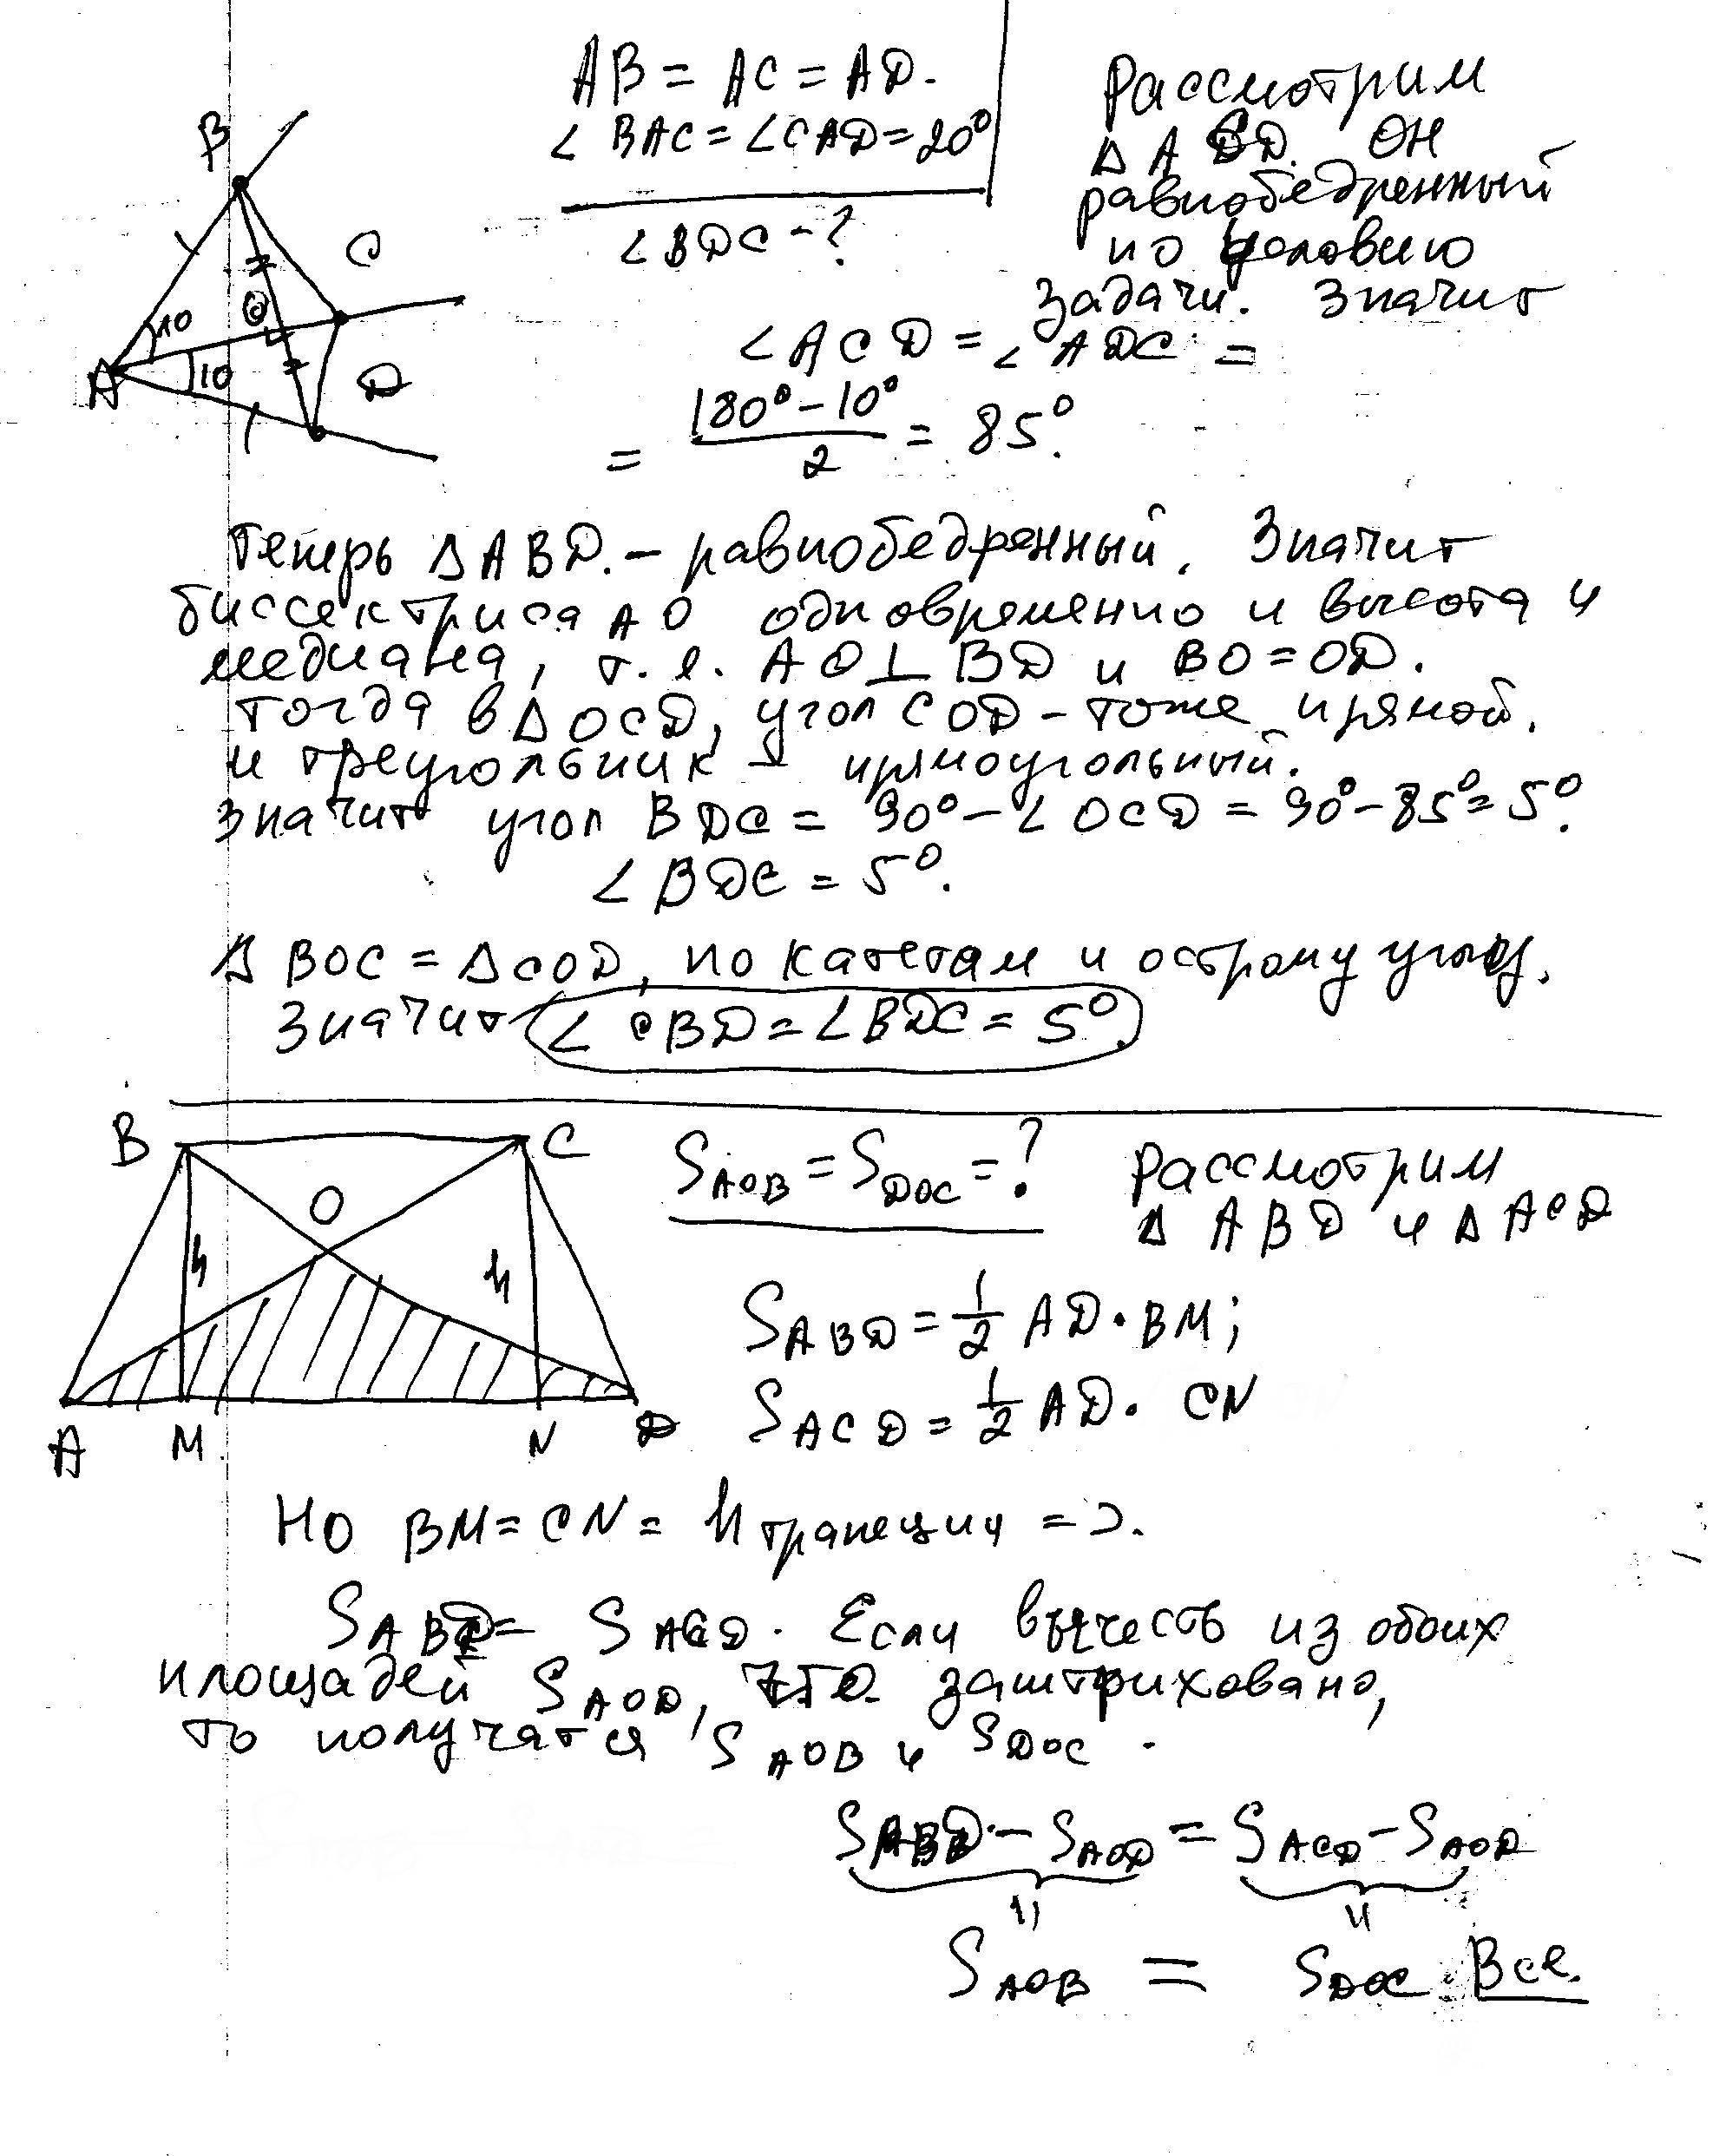 AB = AC = AD.
∠ BAC = ∠CAD = 20°
∠ BDC - ?
Рассмотрим
Δ ACD. ОН
равнобедренный
по условию
задачи. Значит
∠ ACD = ∠ ADC =
= (180° - 10°)/2 = 85°.
B
C
10
O
A
10
D
Теперь Δ ABD. - равнобедренный. Значит
биссектриса AO одновременно и высота и
медиана, т. е. AO ⊥ BD и BO = OD.
тогда в Δ OCD, угол COD - тоже прямой.
и треугольник - прямоугольный.
Значит угол BDC = 90° - ∠ OCD = 90° - 85° = 5°.
∠ BDC = 5°.
Δ BOC = Δ COD, по катетам и острому углу.
Значит ∠ CBD = ∠ BDC = 5°.
B
C
O
h
h
A
M
N
D
S AOB = S DOC = ?
Рассмотрим
Δ ABD и Δ ACD
S ABD = 1/2 AD · BM;
S ACD = 1/2 AD · CN
Но BM = CN = h трапеции =>.
S ABD = S ACD. Если вычесть из обоих
площадей S AOD, что заштриховано,
то получатся S AOB и S DOC.
S ABD - S AOD = S ACD - S AOD
S AOB = S DOC. Все.